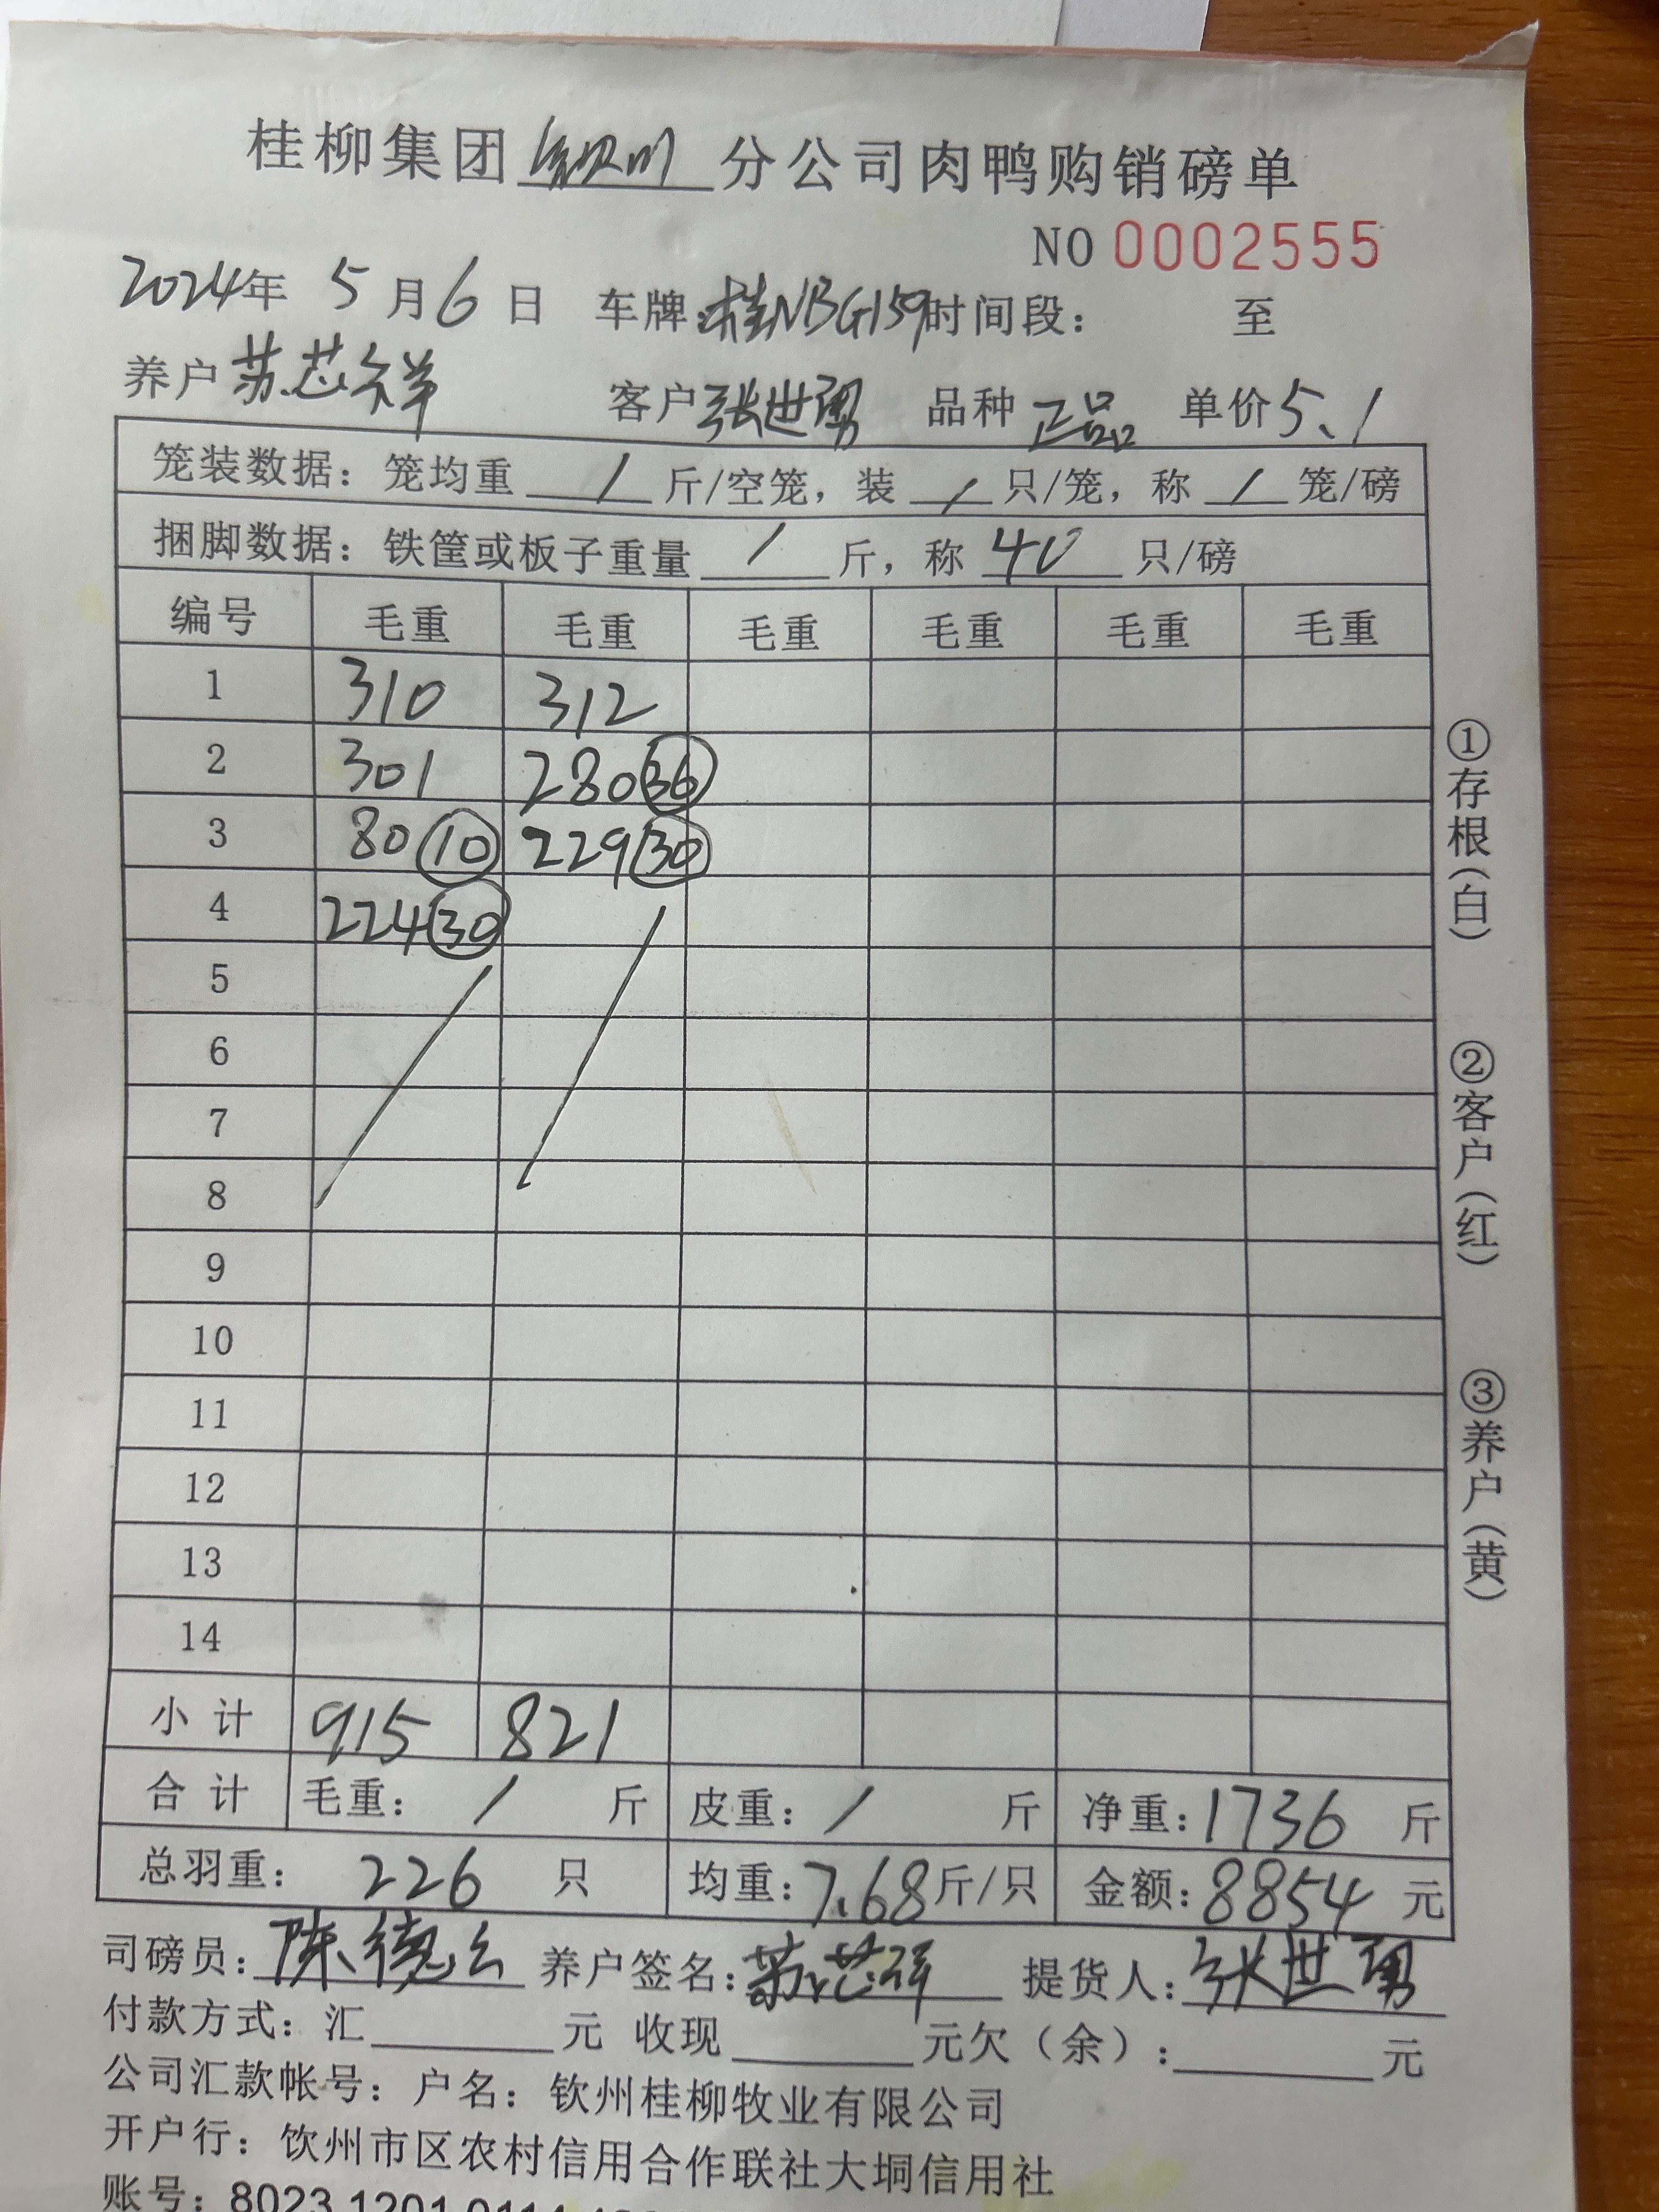 桂柳集团钦州分公司肉鸭购销磅单
NO 0002555
2024年 5月6日 车牌:桂NBG159时间段： 至
养户 苏芯祥 客户 张世勇 品种 正品 单价5.1
笼装数据：笼均重 / 斤/空笼，装 / 只/笼，称 / 笼/磅
捆脚数据：铁筐或板子重量 / 斤，称 40 只/磅
编号 毛重 毛重 毛重 毛重 毛重 毛重
1 310 312
2 301 280 36
3 80 10 229 30
4 224 30
5
6
7
8
9
10
11
12
13
14
小计 915 821
合计 毛重： / 斤 皮重： / 斤 净重：1736 斤
总羽重： 226 只 均重：7.68斤/只 金额：8854 元
司磅员：陈德云 养户签名：苏芯祥 提货人：张世勇
付款方式：汇 元 收现 元欠（余）： 元
公司汇款帐号：户名：钦州桂柳牧业有限公司
开户行：钦州市区农村信用合作联社大垌信用社
账号：8023 1201 0114
①存根（白）
②客户（红）
③养户（黄）